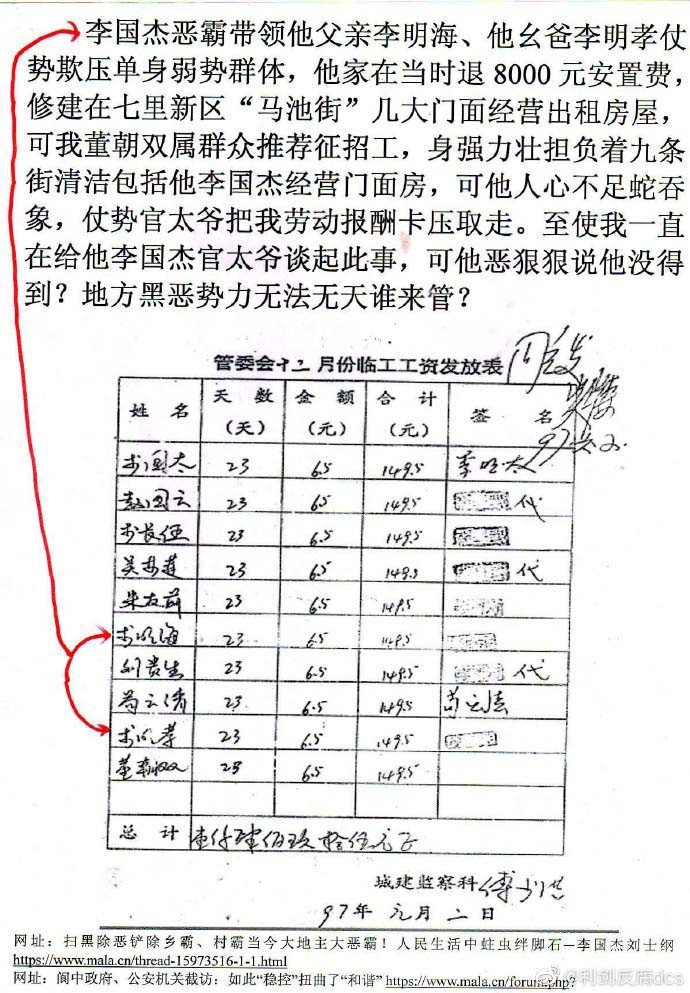 李国杰恶霸带领他父亲李明海、他幺爸李明孝仗
势欺压单身弱势群体，他家在当时退 8000 元安置费，
修建在七里新区“马池街”几大门面经营出租房屋，
可我董朝双属群众推荐征招工，身强力壮担负着九条
街清洁包括他李国杰经营门面房，可他人心不足蛇吞
象，仗势官太爷把我劳动报酬卡压取走。至使我一直
在给他李国杰官太爷谈起此事，可他恶狠狠说他没得
到？地方黑恶势力无法无天谁来管？
管委会十二月份临工工资发放表
姓 名 天 数（天） 金 额（元） 合 计（元） 签 名
李国太 23 6.5 149.5 李国太
赵国云 23 6.5 149.5 代
李长伍 23 6.5 149.5
吴 莲 23 6.5 149.5 代
朱友 23 6.5 149.5
李明海 23 6.5 149.5
刘贵生 23 6.5 149.5 代
苟云清 23 6.5 149.5 苟云清
李明孝 23 6.5 149.5
董朝双 23 6.5 149.5
总 计 壹仟肆佰玖拾伍元正
城建监察科
97年 元月 二日
网址：扫黑除恶铲除乡霸、村霸当今大地主大恶霸！人民生活中蛀虫绊脚石—李国杰刘士纲
https://www.mala.cn/thread-15973516-1-1.html
网址：阆中政府、公安机关截访：如此“稳控”扭曲了“和谐” https://www.mala.cn/forum.php?
@利剑反腐dcs